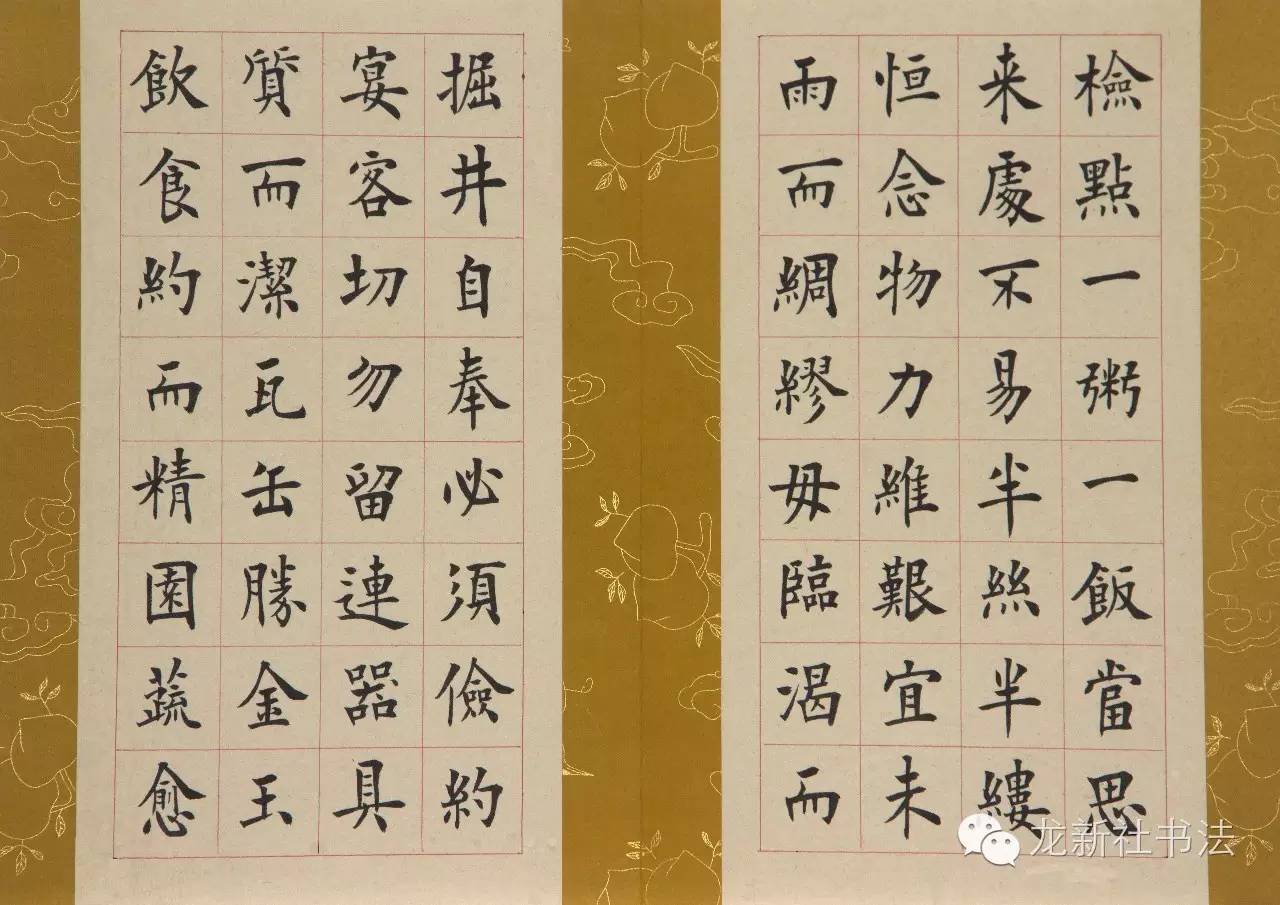 檢點一粥一飯當思
来處不易半絲半縷
恒念物力維艱宜未
雨而綢繆毋臨渴而
掘井自奉必須儉約
宴客切勿留連器具
質而潔瓦缶勝金玉
飲食約而精園蔬愈
龙新社书法